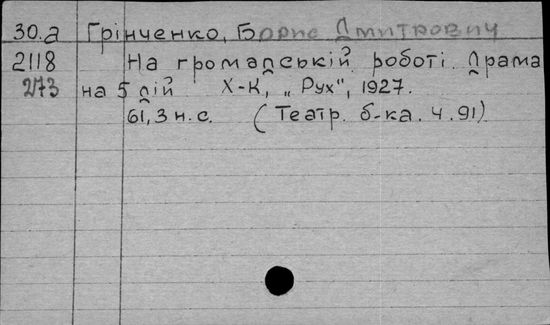 30.а Грінченко, Борис Дмитрович
2118 На громадській роботі. Драма
273 на 5 дій Х-К, „Рух", 1927.
61, 3 н. с. (Театр. б-ка. ч. 91)